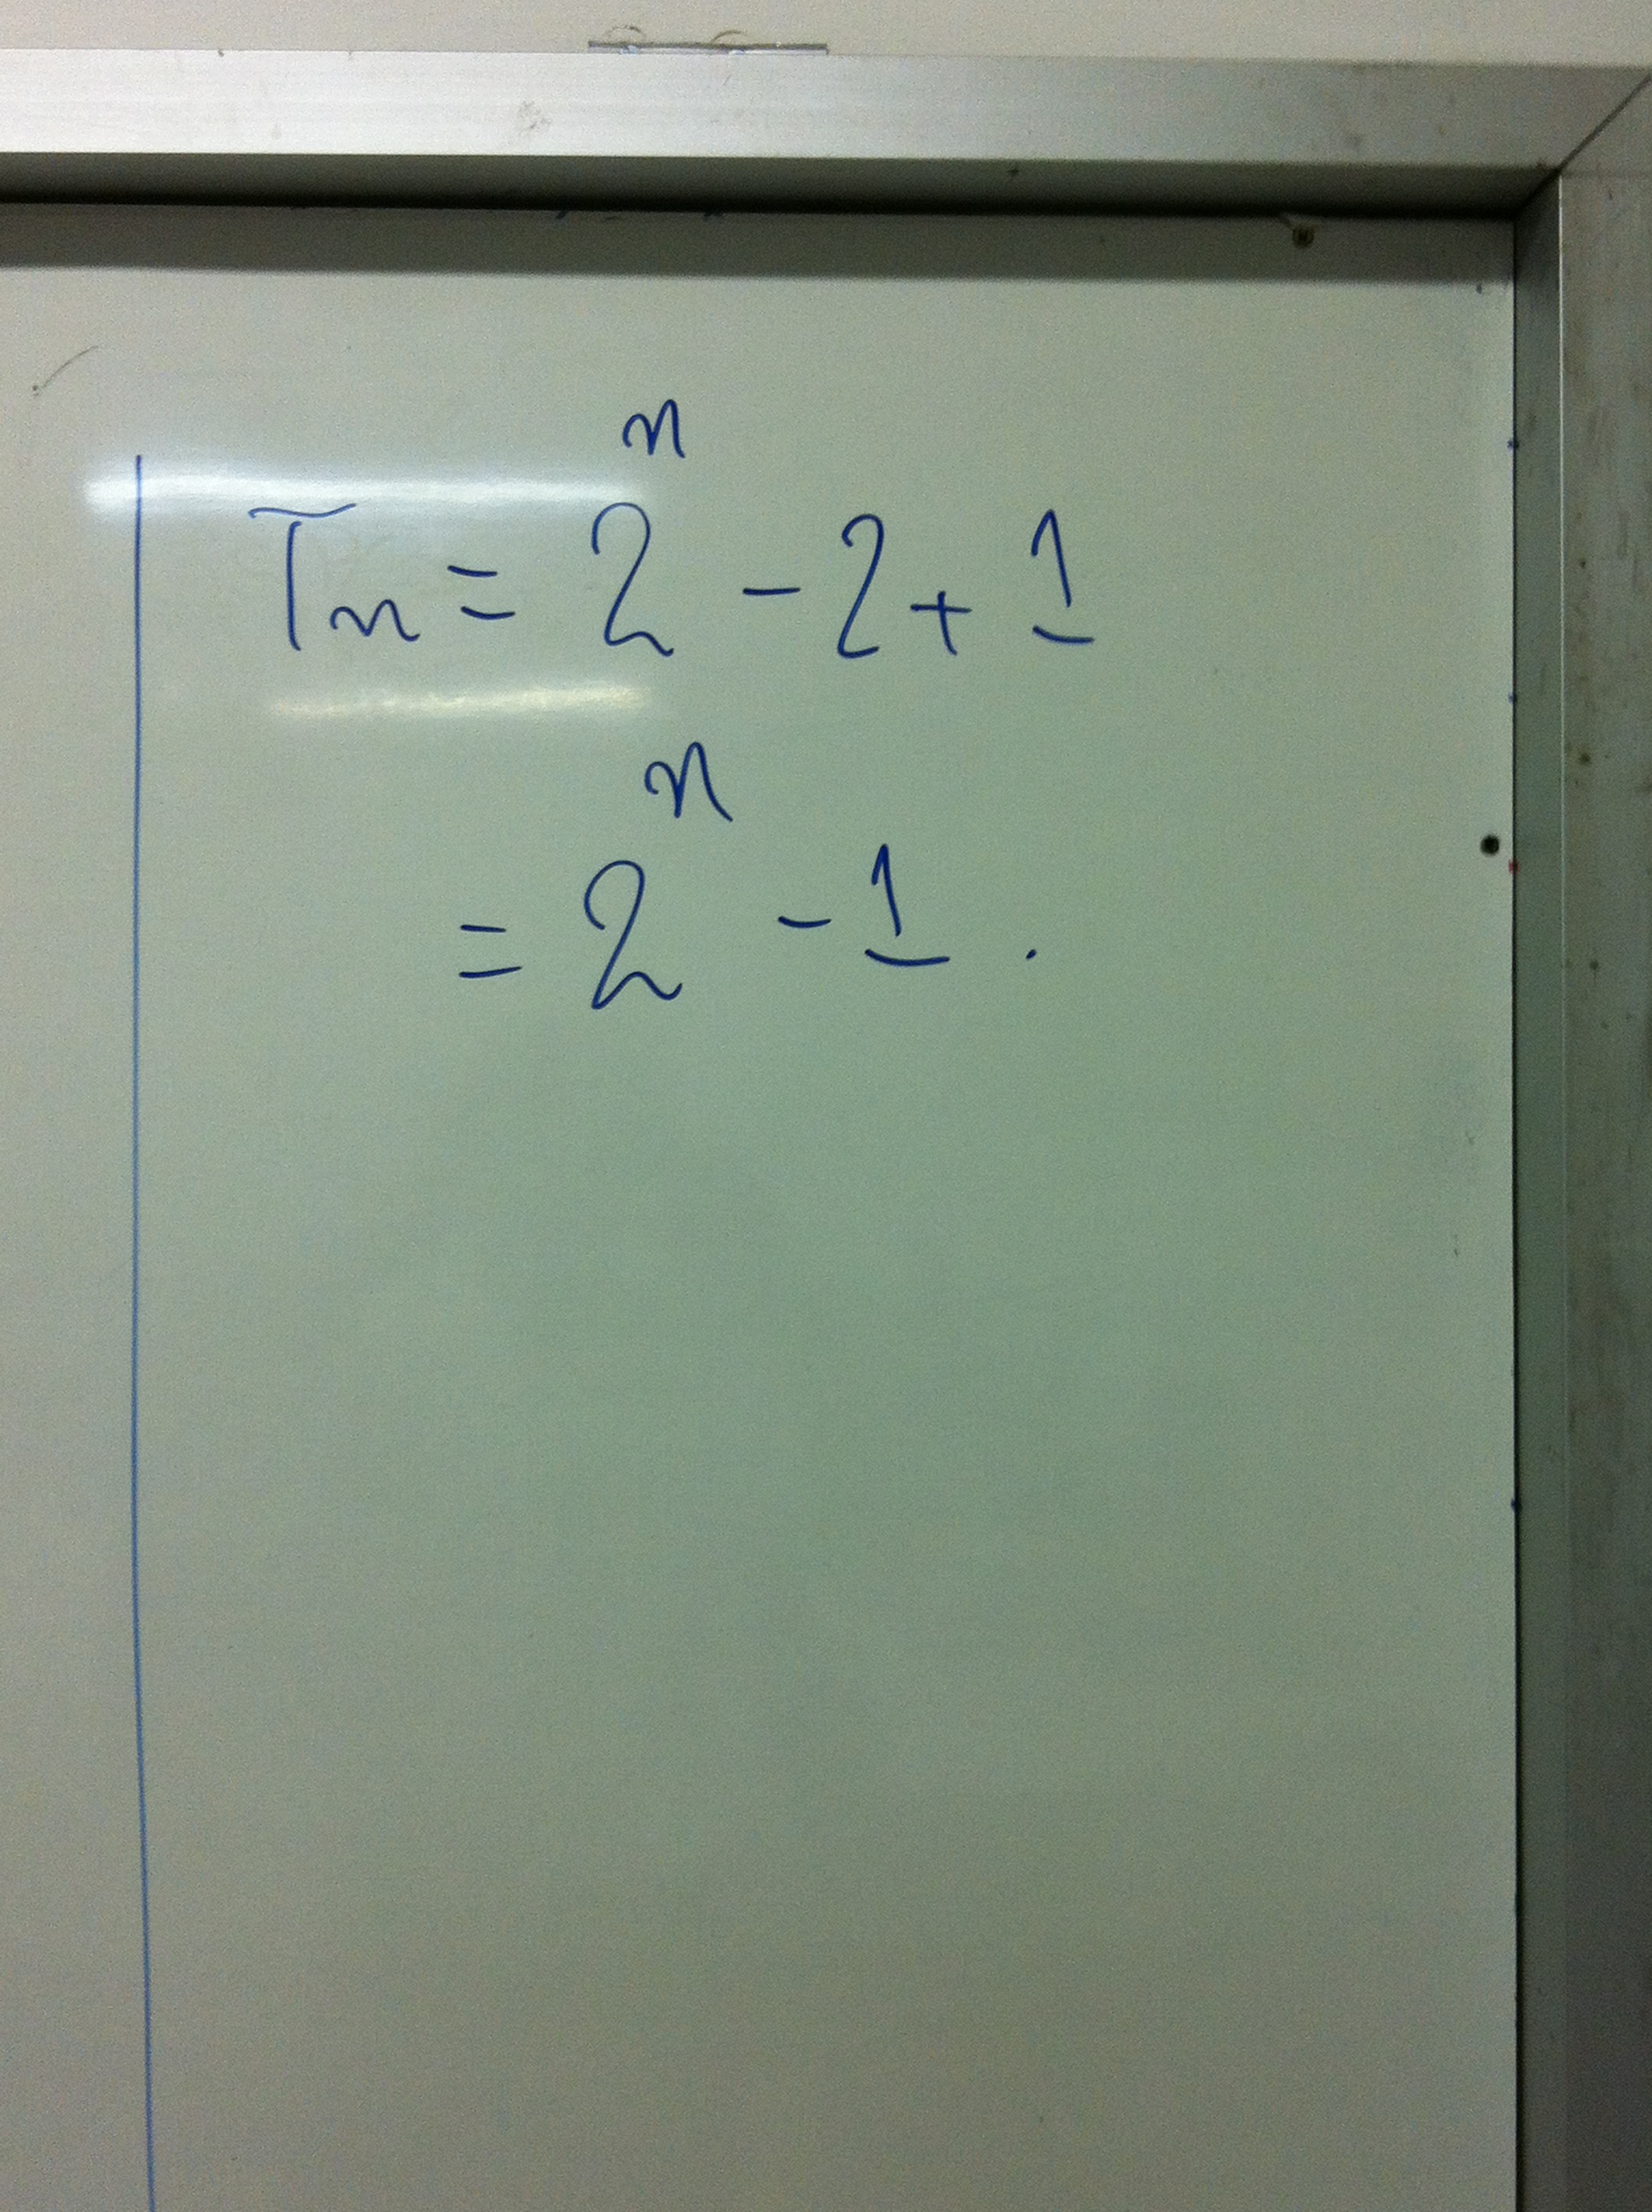 Tn = 2^n - 2 + 1
= 2^n - 1.